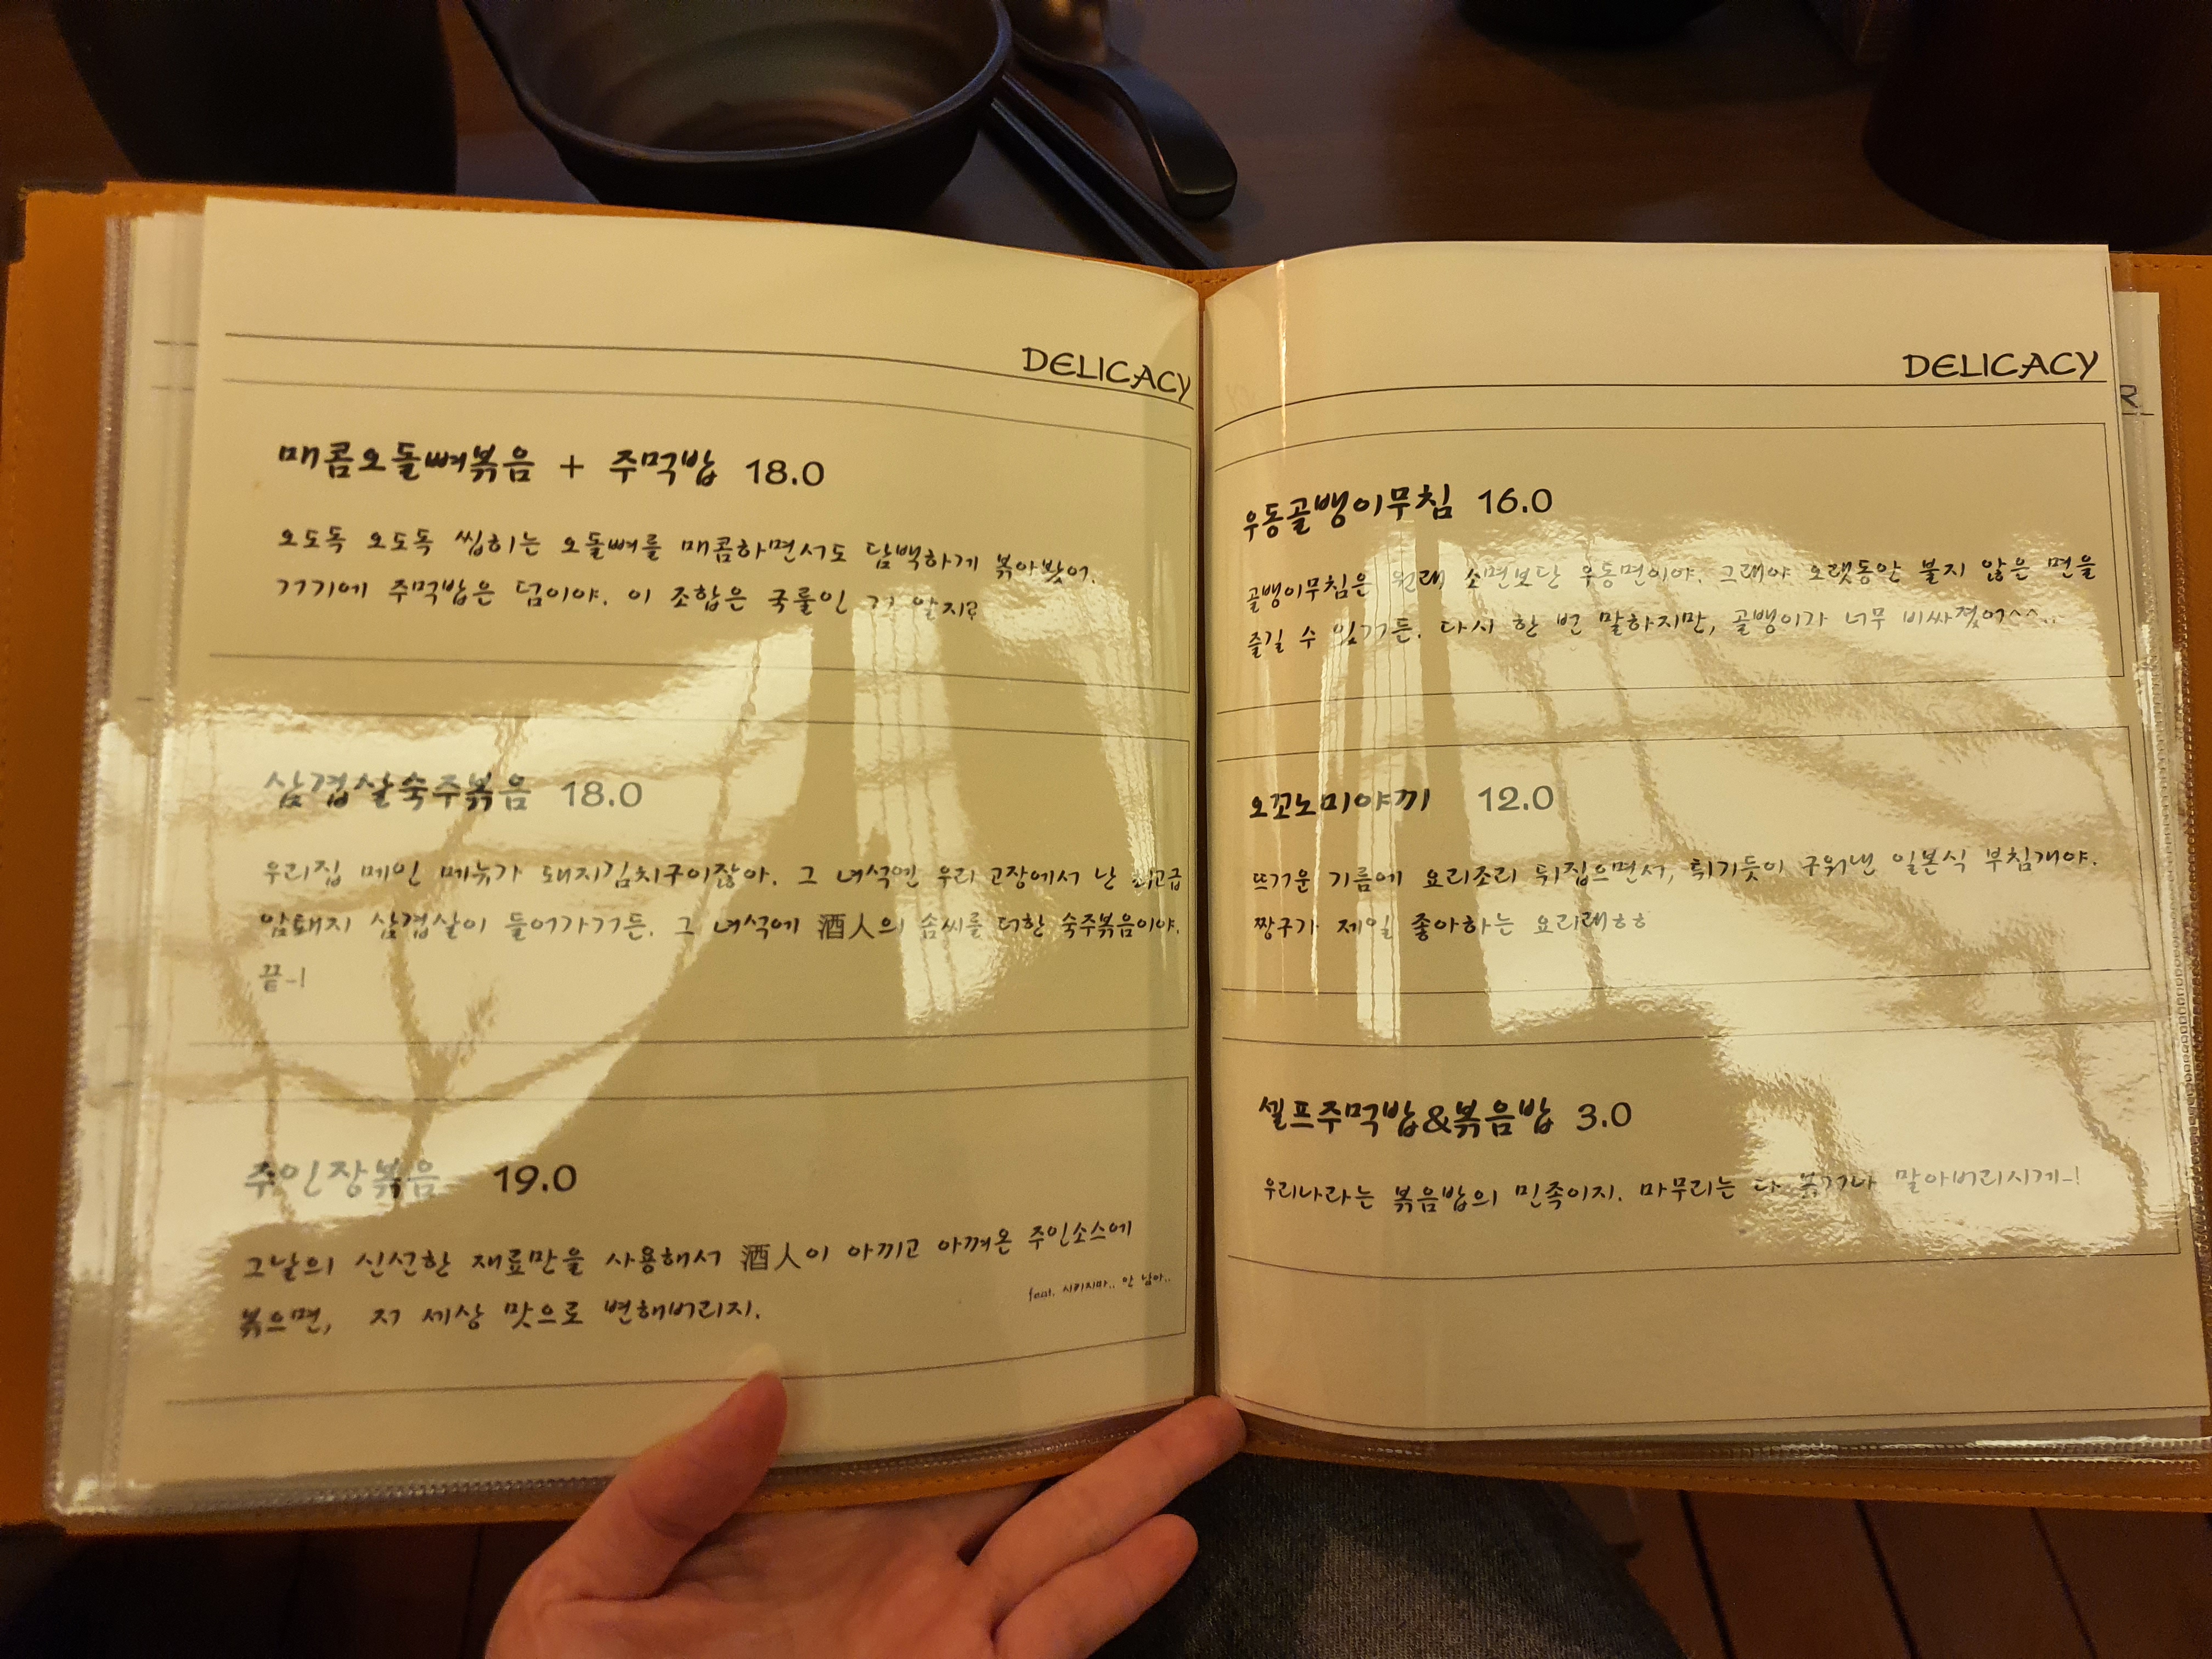 DELICACY
매콤오돌뼈볶음 + 주먹밥 18.0
오도독 오도독 씹히는 오돌뼈를 매콤하면서도 담백하게 볶아봤어.
거기에 주먹밥은 덤이야. 이 조합은 국룰인 거 알지?
삼겹살숙주볶음 18.0
우리집 메인 메뉴가 돼지김치구이잖아. 그 녀석엔 우리 고장에서 난 최고급
암퇘지 삼겹살이 들어가거든. 그 녀석에 酒人의 솜씨를 더한 숙주볶음이야.
끝-!
주인장볶음 19.0
그날의 신선한 재료만을 사용해서 酒人이 아끼고 아껴온 주인소스에
볶으면, 저 세상 맛으로 변해버리지.
feat. 시키지마.. 안 남아..
DELICACY
우동골뱅이무침 16.0
골뱅이무침은 원래 소면보단 우동면이야. 그래야 오랫동안 불지 않은 면을
즐길 수 있거든. 다시 한 번 말하지만, 골뱅이가 너무 비싸졌어^^..
오꼬노미야끼 12.0
뜨거운 기름에 요리조리 뒤집으면서, 튀기듯이 구워낸 일본식 부침개야.
짱구가 제일 좋아하는 요리래ㅎㅎ
셀프주먹밥&볶음밥 3.0
우리나라는 볶음밥의 민족이지. 마무리는 다 볶거나 말아버리시게-!
R